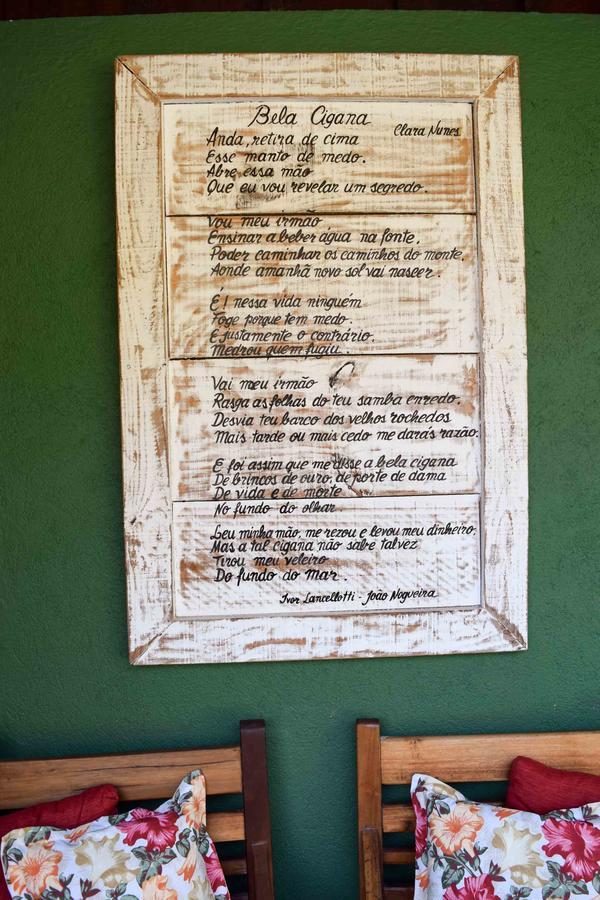 Bela Cigana
Clara Nunes
Anda, retira de cima
Esse manto de medo.
Abre essa mão
Que eu vou revelar um segredo.
Vou meu irmão
Ensinar a beber água na fonte,
Poder caminhar os caminhos do monte,
Aonde amanhã novo sol vai nascer.
É! nessa vida ninguém
Foge porque tem medo.
E justamente o contrário.
Medrou quem fugiu.
Vai meu irmão
Rasga as folhas do teu samba enredo,
Desvia teu barco dos velhos rochedos
Mais tarde ou mais cedo me darás razão.
E foi assim que me disse a bela cigana
De brincos de ouro, de porte de dama
De vida e de morte
No fundo do olhar.
Leu minha mão, me rezou e levou meu dinheiro,
Mas a tal cigana não sabe talvez
Tirou meu veleiro
Do fundo do mar.
Ivor Lancellotti - João Nogueira